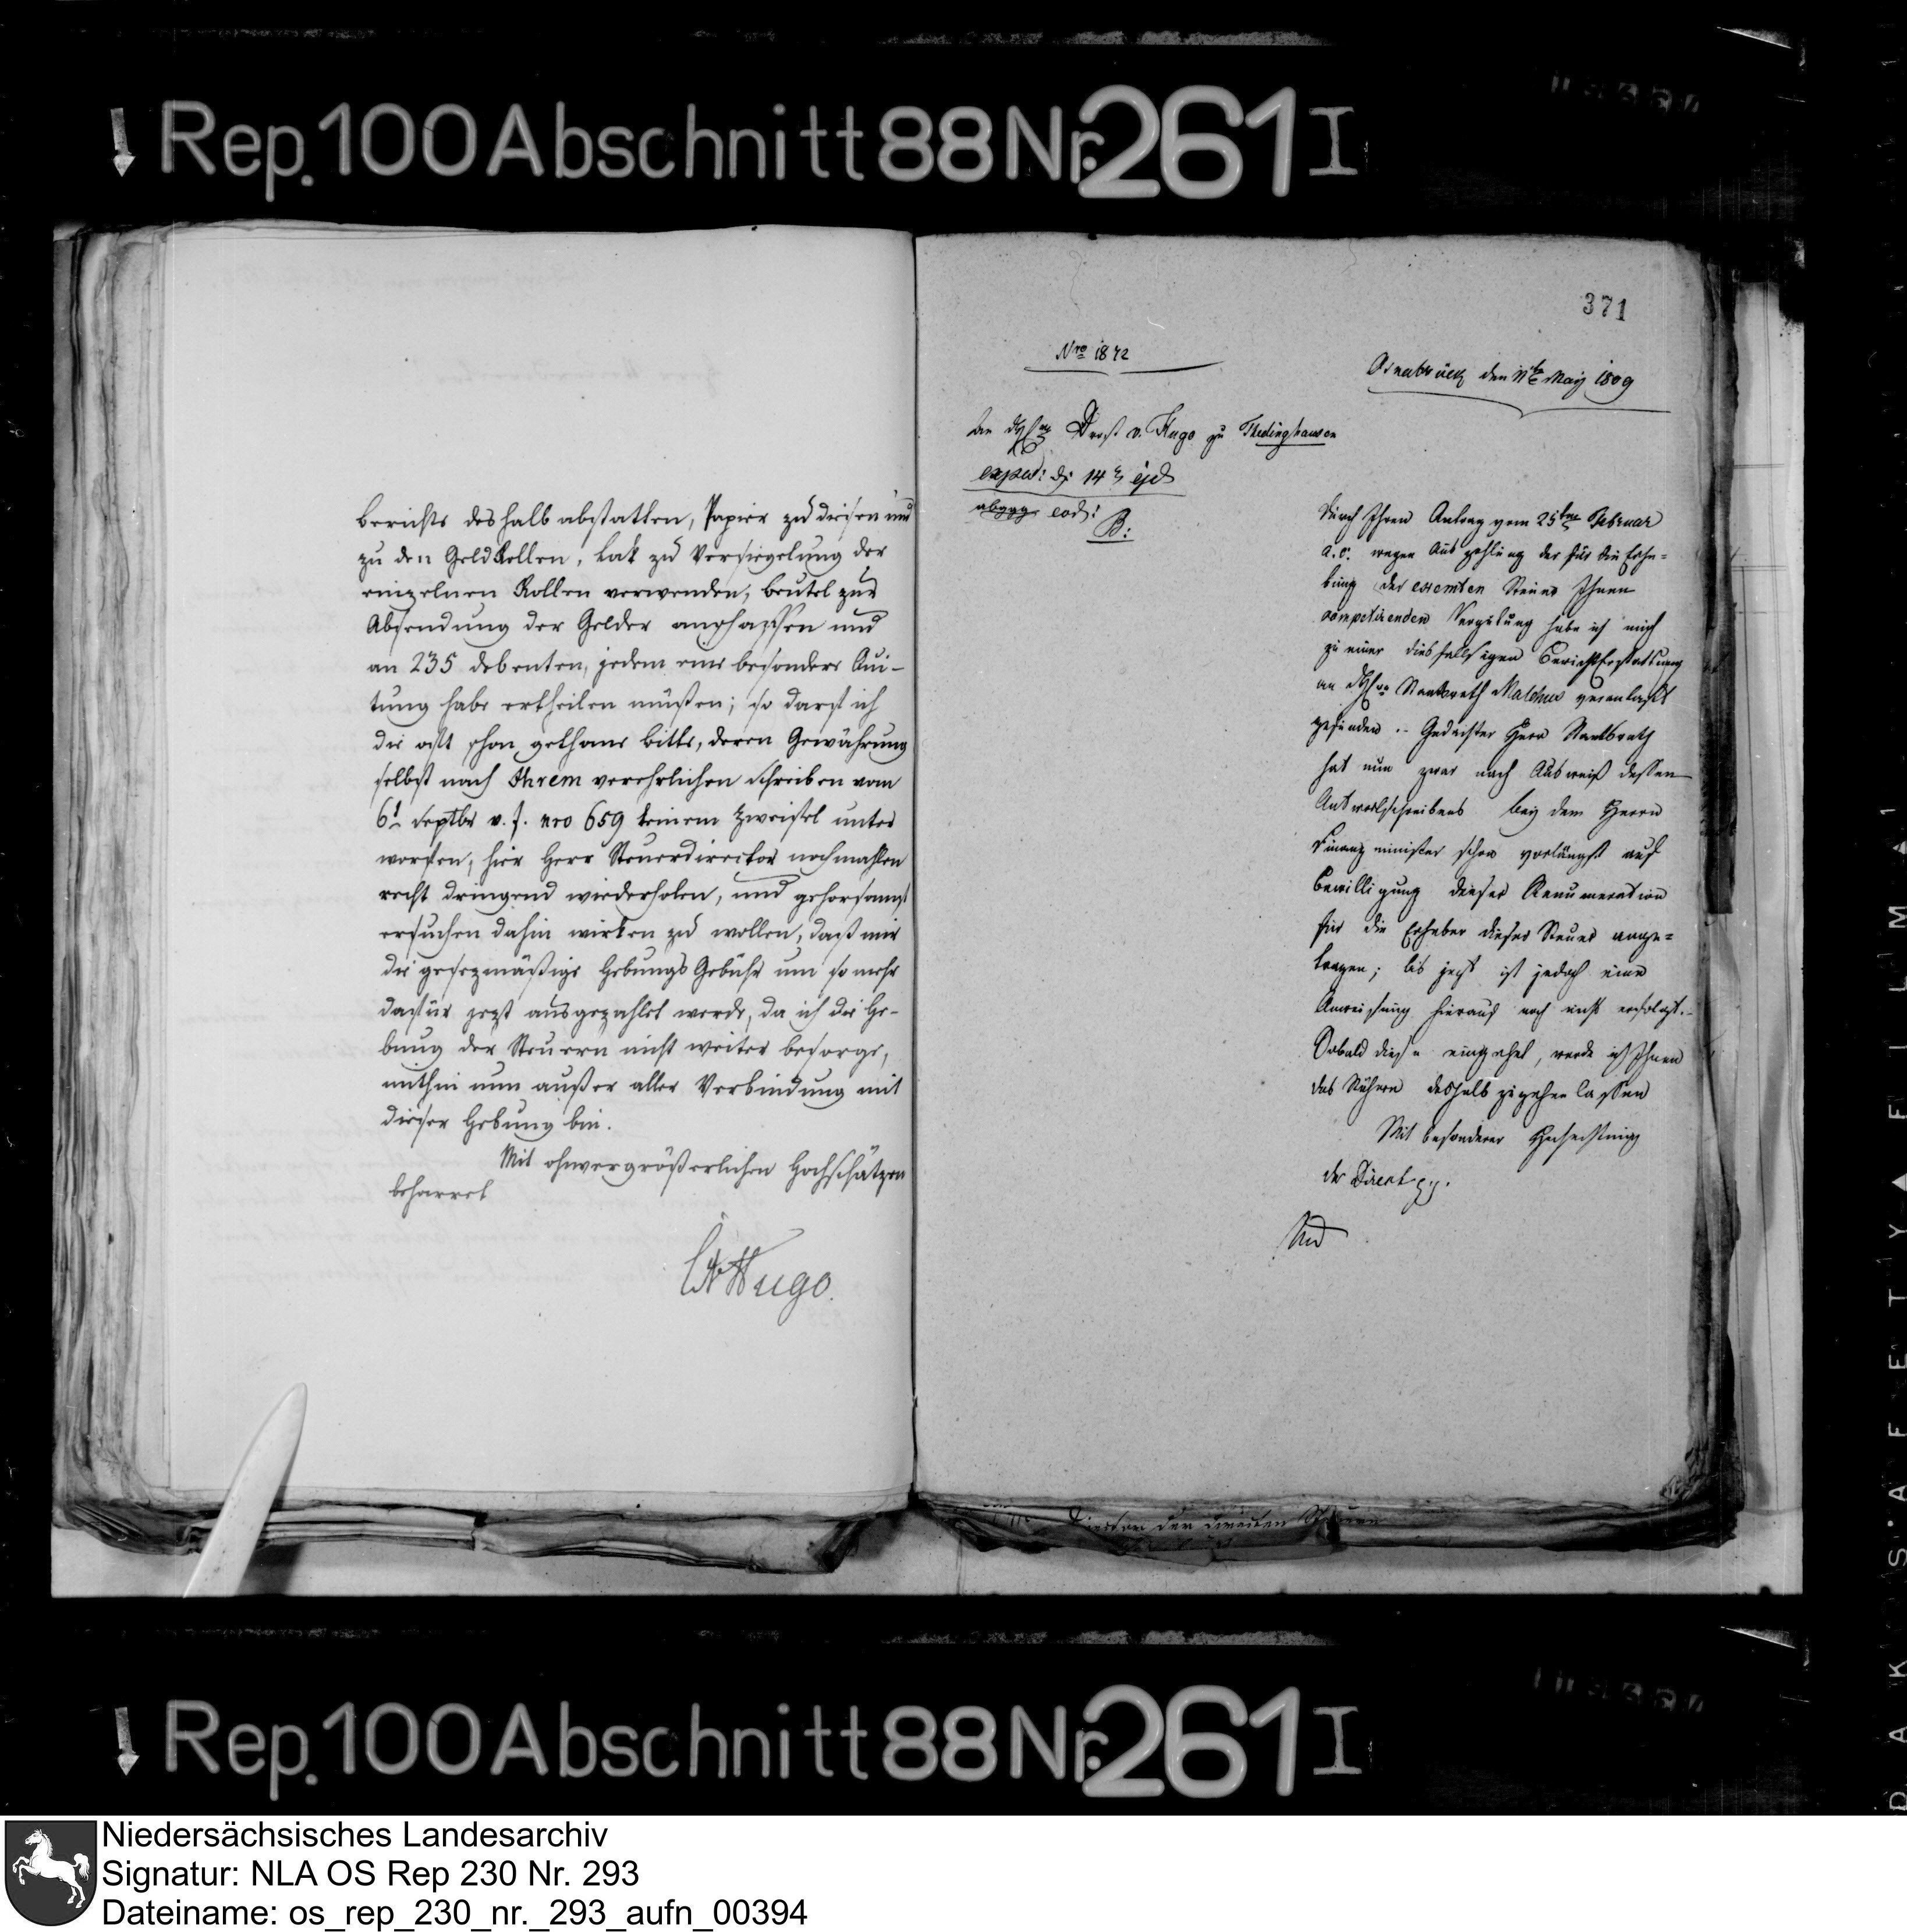 Rep. 100 Abschnitt 88 Nr. 261 I
berichte deshalb abstatten, Papier zu diesen und
zu den GeldRollen, Lak zu Versiegelung der
einzelnen Rollen verwenden, beutel zur
Absendung der Gelder anschaffen und
an 235 debenten, jedem eine besondere Qui-
tung habe ertheilen müßen; so darf ich
die oft schon gethane bitte, deren Gewährung
selbst nach Ihrem verehrlichen Schreiben vom
6t Septbr v. J. nro 659 keinem Zweifel unter
worfen, hier Herr Steuerdirector nochmahlen
recht dringend wiederholen, und gehorsamst
ersuchen dahin wirken zu wollen, daß mir
die gesezmäßige Hebungs Gebühr um so mehr
dafür jezt ausgezahlet werde, da ich die He-
bung der Steuern nicht weiter besorge,
mithin nun außer aller Verbindung mit
dieser Hebung bin.
Mit ohnvergrößerlichen Hochschätzen
beharret
Hugo.
371
Nro 1872
Osnabrück den 11ten May 1809
An Drost v. Hugo zu Thedinghausen
exped: d. 14 ejd
abgeg. eod:
B:
Durch Ihren Antrag vom 25ten Februar
a. c. wegen Auszahlung der für die Erhe-
bung der exemten Steuer Ihnen
competirenden Vergütung habe ich mich
zu einer diesfallsigen Berichtserstattung
an Staatsrath Malchus veranlaßt
gefunden. Gedachter Herr Staatsrath
hat nun zwar nach Ausweiß dessen
Antwortschreibens bey dem Herrn
Finanzminister schon vorlängst auf
Bewilligung dieser Renumeration
für die Erheber dieser Steuer ange-
tragen; bis jezt ist jedoch eine
Anweisung hierauf noch nicht erfolgt.
Sobald diese eingehet, werde ich Ihnen
das Nähere deshalb zugehen lassen
Mit besonderer Hochachtung
der Direct
Director der directen Steuern
Rep. 100 Abschnitt 88 Nr. 261 I
SAFETY FILM
Niedersächsisches Landesarchiv
Signatur: NLA OS Rep 230 Nr. 293
Dateiname: os_rep_230_nr._293_aufn_00394